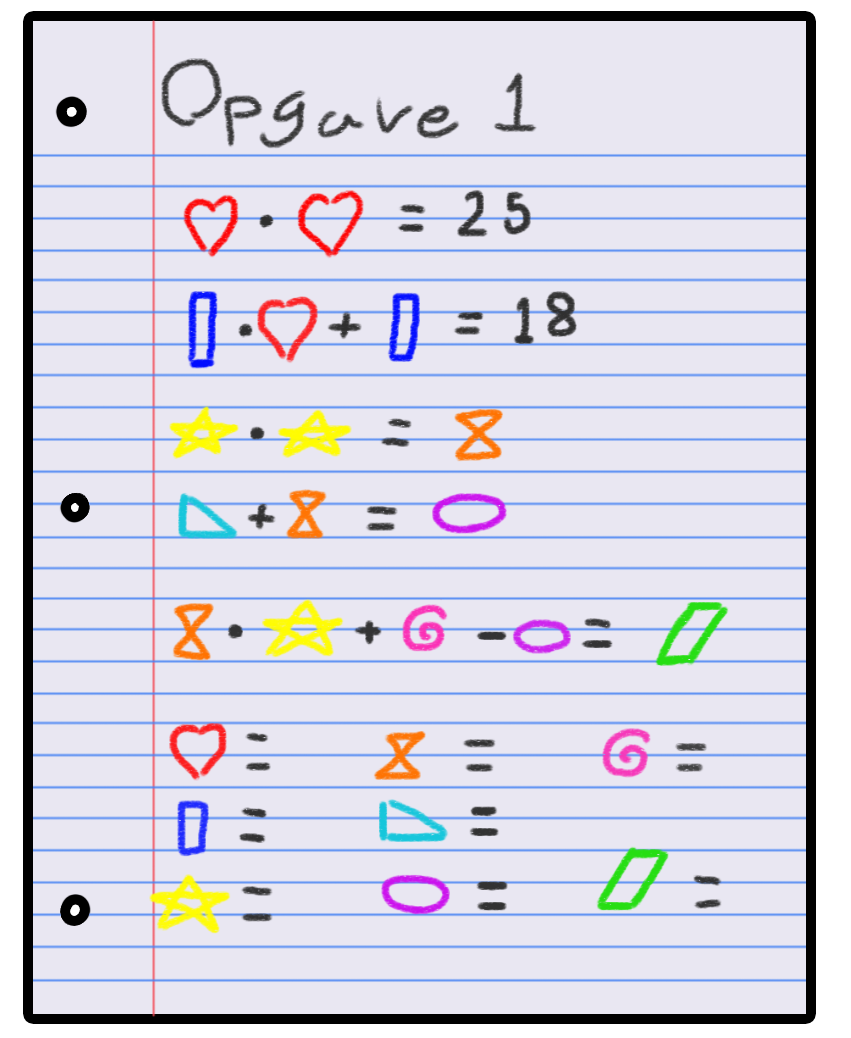 Opgave 1
· = 25
· + = 18
· =
+ =
· + - =
= = =
= =
= = =